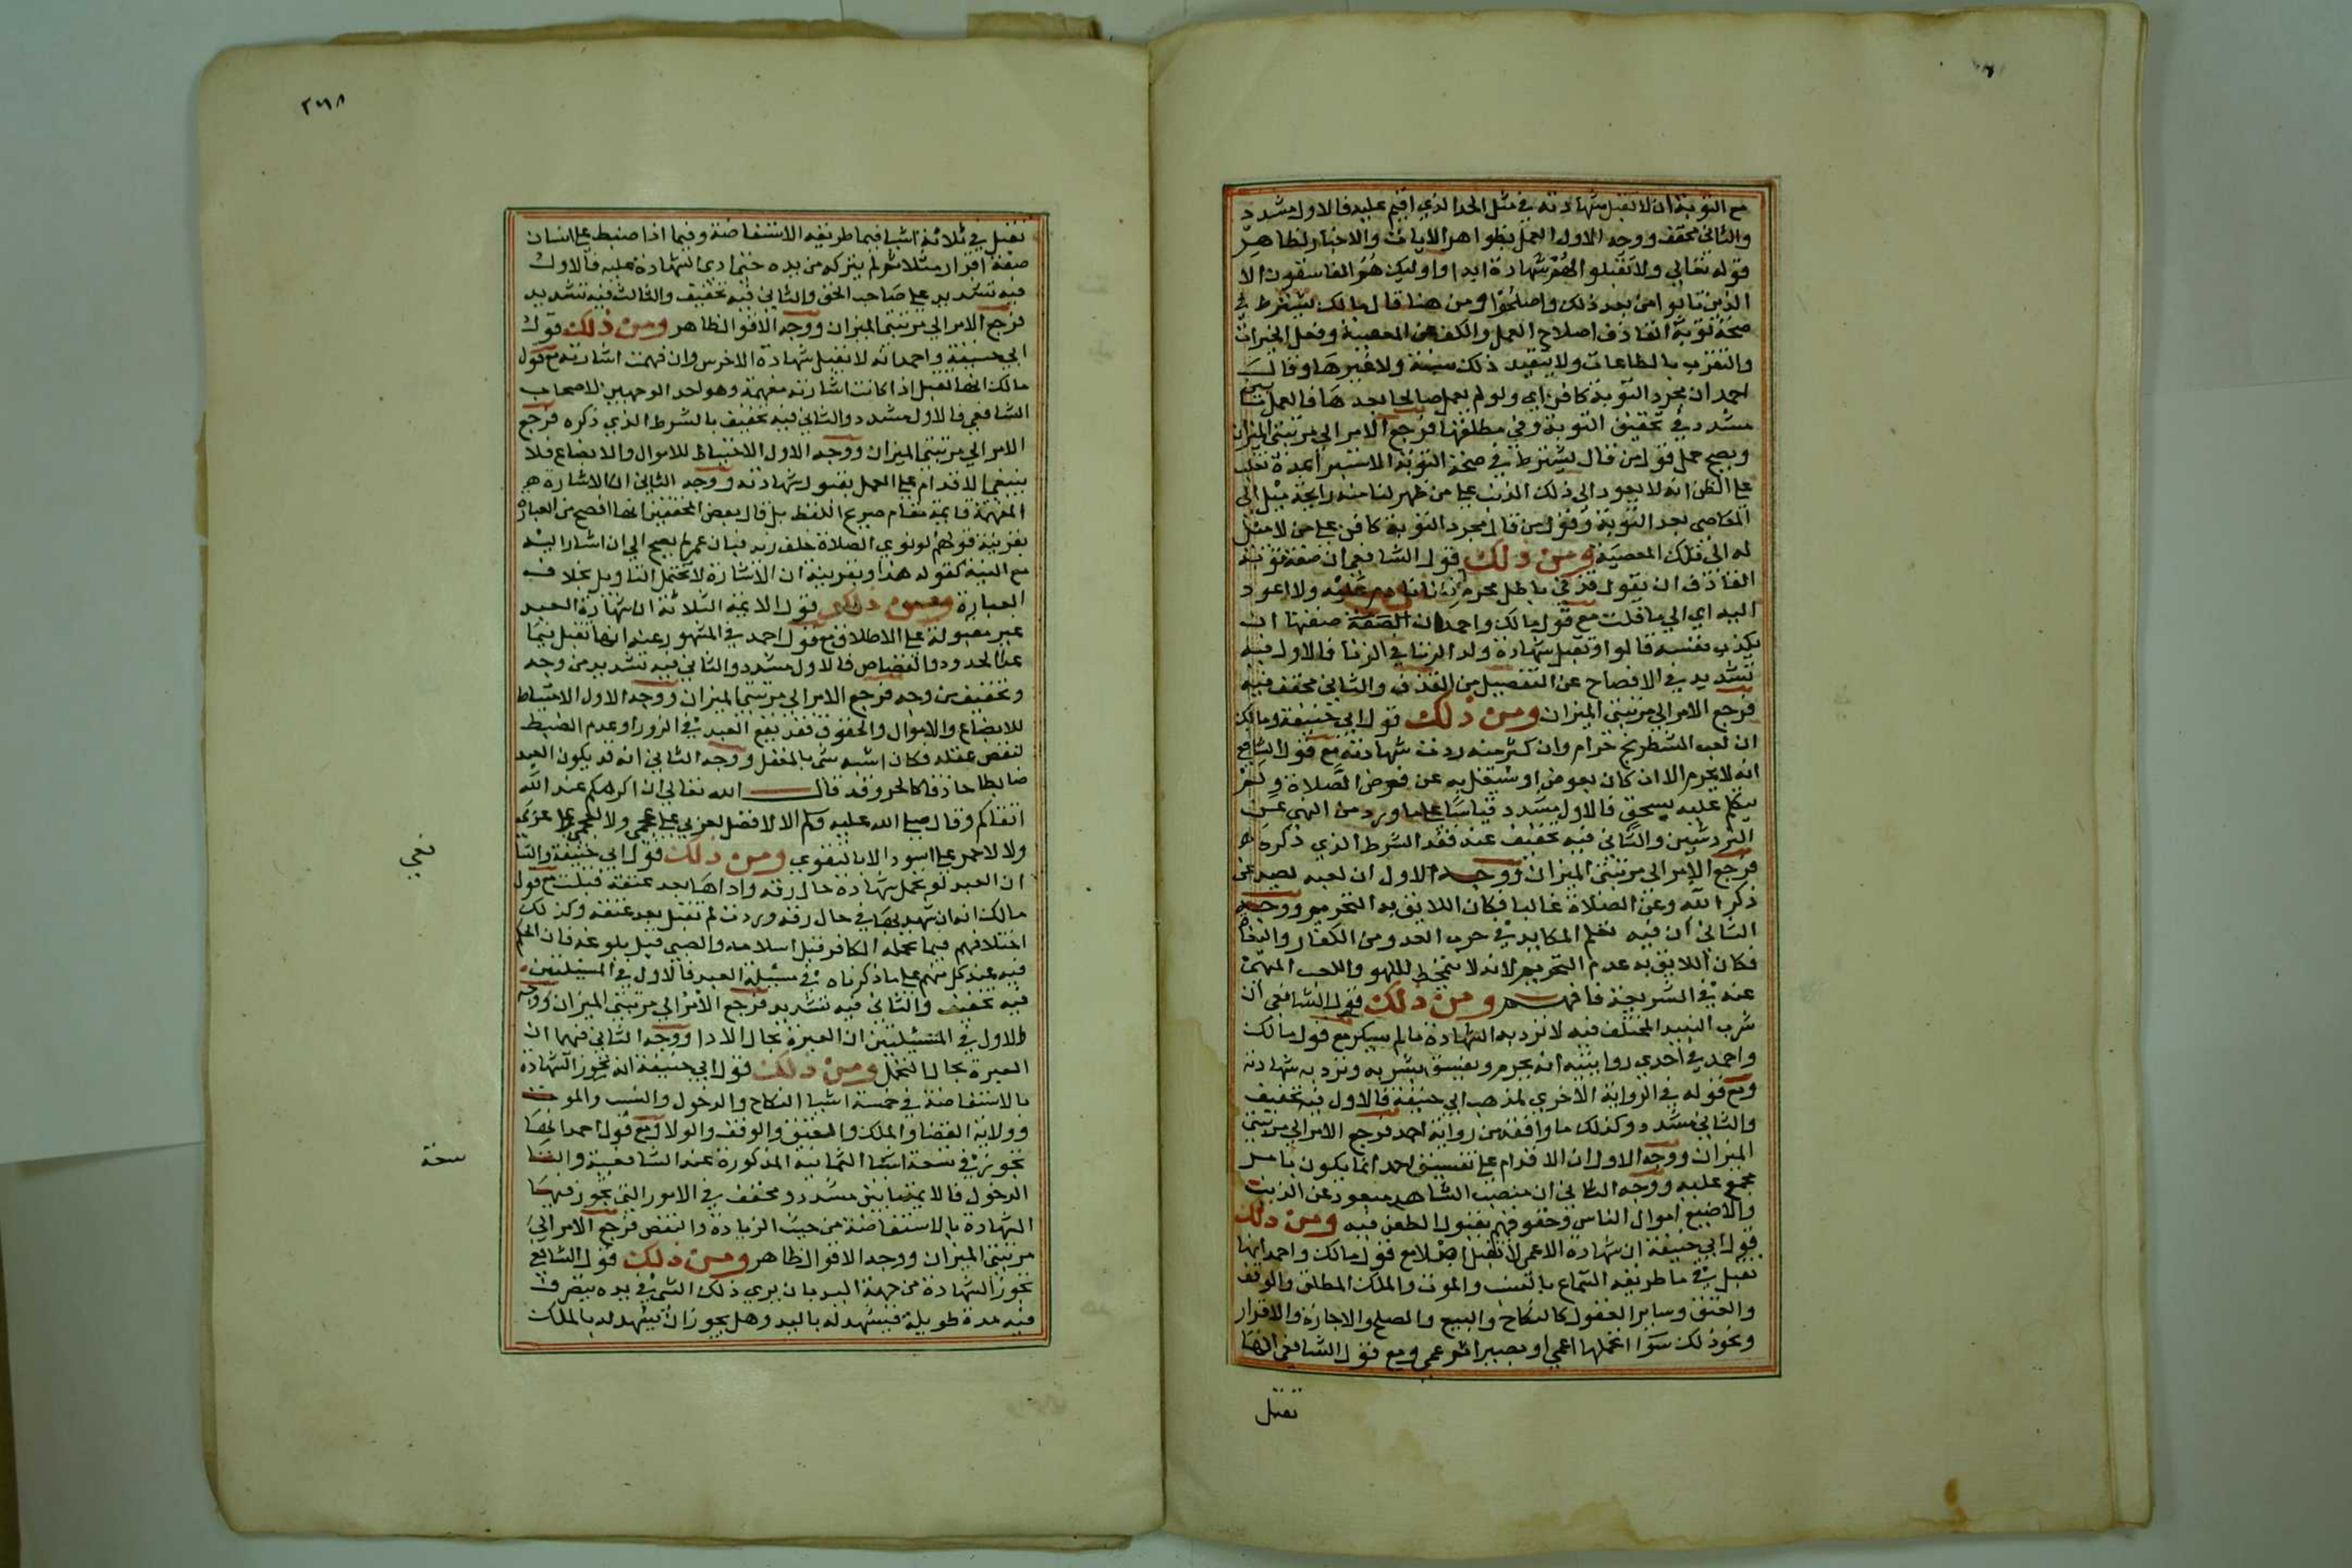 مع التوبة ان لا تقبل شهادته في مثل الحد الذي اقيم عليه فالاول مشدد
والثاني مخفف ووجه الاول العمل بظواهر الايات والاخبار لظاهر
قوله تعالى ولا تقبلوا لهم شهادة ابدا واوليك هم الفاسقون الا
الذين تابوا من بعد ذلك واصلحوا ومن هنا قال مالك يشترط في
صحة توبة القاذف اصلاح العمل والكف عن المعصية وفعل الخيرات
والتقرب بالطاعات ولا يتقيد ذلك بسنة ولا غيرها وقال
احمد ان مجرد التوبة كاف اي ولو لم يعمل صالحا بعدها فالعمل
مشدد في تحقيق التوبة وفي مطلقها فرجع الامر الي مرتبتي الميزان
ويصح حمل قول من قال يشترط في صحة التوبة الاستبرا مدة تغلب
على الظن انه لا يعود الى ذلك الذنب على من ظهر لنا منه رايحة ميل الى
المعاصي بعد التوبة وقول من قال مجرد التوبة كاف على من لا ميل
له الى تلك المعصية ومن ذلك قول الشافعي ان صفة توبة
القاذف ان يقول قذفي باطل محرم انا نادم عليه ولا اعود
اليه اي الي ما قلت مع قول مالك واحمد ان الصفة صفتها ان
يكذب نفسه قالوا وتقبل شهادة ولد الزنا في الزنا فالاول فيه
تشديد في الافصاح عن التفصيل من القذف والثاني مخفف فيه
فرجع الامر الي مرتبتي الميزان ومن ذلك قول ابي حنيفة ومالك
ان لعب الشطرنج حرام وان كثر منه ردت شهادته مع قول الشافعي
انه لا يحرم الا ان كان بعوض او شتغل به عن فرض الصلاة ولم
يتكلم عليه بسخف فالاول مشدد قياسا على ما ورد من النهي عن
النردشين والثاني فيه تخفيف عند فقد الشرط الذي ذكره
فرجع الامر الي مرتبتي الميزان ووجه الاول ان لعبه يصد عن
ذكر الله وعن الصلاة غالبا فكان اللايق به التحريم ووجه
الثاني ان فيه تعلم المكايد في حرب العدو من الكفار والبغاة
فكان اللايق به عدم التحريم لانه لا يتمحط للهو واللعب المنهي
عنه في الشريعة فافهم ومن ذلك قول الشافعي ان
شرب النبيذ المختلف فيه لا ترد به الشهادة مالم يسكر مع قول مالك
واحمد في احدي روايتيه انه يحرم ويفسق بشربه وترد به شهادته
ومع قوله في الرواية الاخري لمذهب ابي حنيفة فالاول فيه تخفيف
والثاني مشدد وكذلك ما وافقه من رواية احمد فرجع الامر الي مرتبتي
الميزان ووجه الاول ان الاقدام على تفسيق احد انما يكون بامر
مجمع عليه ووجه الثاني ان منصب الشاهد مبعود عن الذنب
والاضيع اموال الناس وحقوقهم بقبول الطعن فيه ومن ذلك
قول ابي حنيفة ان شهادة الاعمي لا تقبل اصلا مع قول مالك واحمد انها
تقبل في ما طريقه السماع بالنسب والموت والملك المطلق والوقف
والعتق وساير العقول كالنكاح والبيع والصلح والاجارة والاقرار
ونحو ذلك سوا تحملها اعمي او بصيرا ثم عمي ومع قول الشافعي انها
تقبل
٢٦٨
تقبل في ثلاثة اشيا فيما طريقه الاستفاضة وفيما اذا ضبط على انسان
صفة اقرار مثلا ثم لم يتركه من يده حتى ادى الشهادة عليه فالاول
فيه تشديد على صاحب الحق والثاني فيه تخفيف والثالث فيه تشديد
فرجع الامر الي مرتبتي الميزان ووجه الاقوال ظاهر ومن ذلك قول
ابي حنيفة واحمد انه لا تقبل شهادة الاخرس وان فهمت اشارته مع قول
مالك انها تقبل اذا كانت اشارته مفهمة وهو احد الوجهين لاصحاب
الشافعي فالاول مشدد والثاني فيه تخفيف بالشرط الذي ذكره فرجع
الامر الي مرتبتي الميزان ووجه الاول الاحتياط للاموال والابضاع فلا
ينبغي الاقدام على العمل بقبول شهادته ووجه الثاني ان الاشارة
المفهمة قايمة مقام صريح اللفظ بل قال بعض المحققين انها افصح من العبارة
بقرينة قولهم لو نوي الصلاة خلف زيد فبان عمر لم يصح الي ان اشار اليه
مع النية كقوله هذا وبقرينة ان الاشارة لا تحتمل التاويل بخلاف
العبارة ومن ذلك قول الايمة الثلاثة ان شهادة العبد
غير مقبولة على الاطلاق مع قول احمد في المشهور عنه انها تقبل فيما
عدا الحدود والقصاص فالاول مشدد والثاني فيه تشديد من وجه
وتخفيف من وجه فرجع الامر الي مرتبتي الميزان ووجه الاول الاحتياط
للابضاع والاموال والحقوق فقد يقع العبد في الزور او عدم الضبط
لنقص عقله فكان اشبه شي بالمغفل ووجه الثاني انه قد يكون العبد
ضابطا حاذقا كالحر وقد قال الله تعالى ان اكرمكم عند الله
اتقاكم وقال صلى الله عليه وسلم الا لا فضل لعربي على عجمي ولا لعجمي على عربي
ولا لاحمر على اسود الا بالتقوي ومن ذلك قول ابي حنيفة والشا
فعي
ان العبد لو تحمل شهادة حال رقه واداها بعد عتقه قبلت مع قول
مالك انه ان شهد بها في حال رقه وردت لم تقبل بعد عتقه وكذلك
اختلافهم فيما تحمله الكافر قبل اسلامه والصبي قبل بلوغه فان الحكم
فيه عند كل منهم على ما ذكرناه في مسئلة العبد فالاول في المسيلتين
فيه تخفيف والثاني فيه تشديد فرجع الامر الي مرتبتي الميزان ووجه
الاول في المسئيلتين ان العبرة بحال الادا ووجه الثاني فيهما ان
العبرة بحال التحمل ومن ذلك قول ابي حنيفة انه تجوز الشهادة
بالاستفاضة في خمسة اشيا النكاح والدخول والنسب والموت
وولاية القضا والملك والعتق والوقف والولا ومع قول احمد انها
تجوز في تسعة اشيا الثمانية المذكورة عند الشافعية والتاسعة
سعة
الدخول فالايمة ما بين مشدد ومخفف في الامور التي يجوز فيها
الشهادة بالاستفاضة من حيث الزيادة والنقص فرجع الامر الي
مرتبتي الميزان ووجه الاقوال ظاهر ومن ذلك قول الشافعي
تجوز الشهادة من جهة اليد بان يري ذلك الشي في يده يتصرف
فيه مدة طويلة فيشهد له باليد وهل يجوز ان يشهد له بالملك